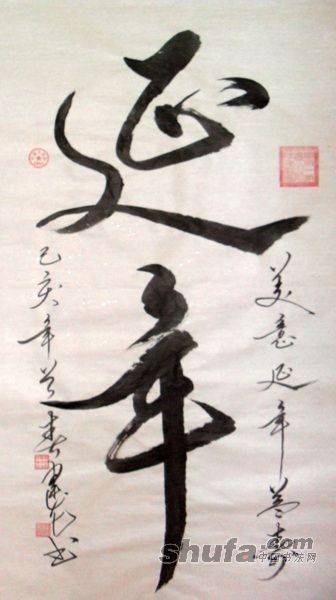 美意延年益寿
延年
己亥年春书
shufa.com
中国书法网